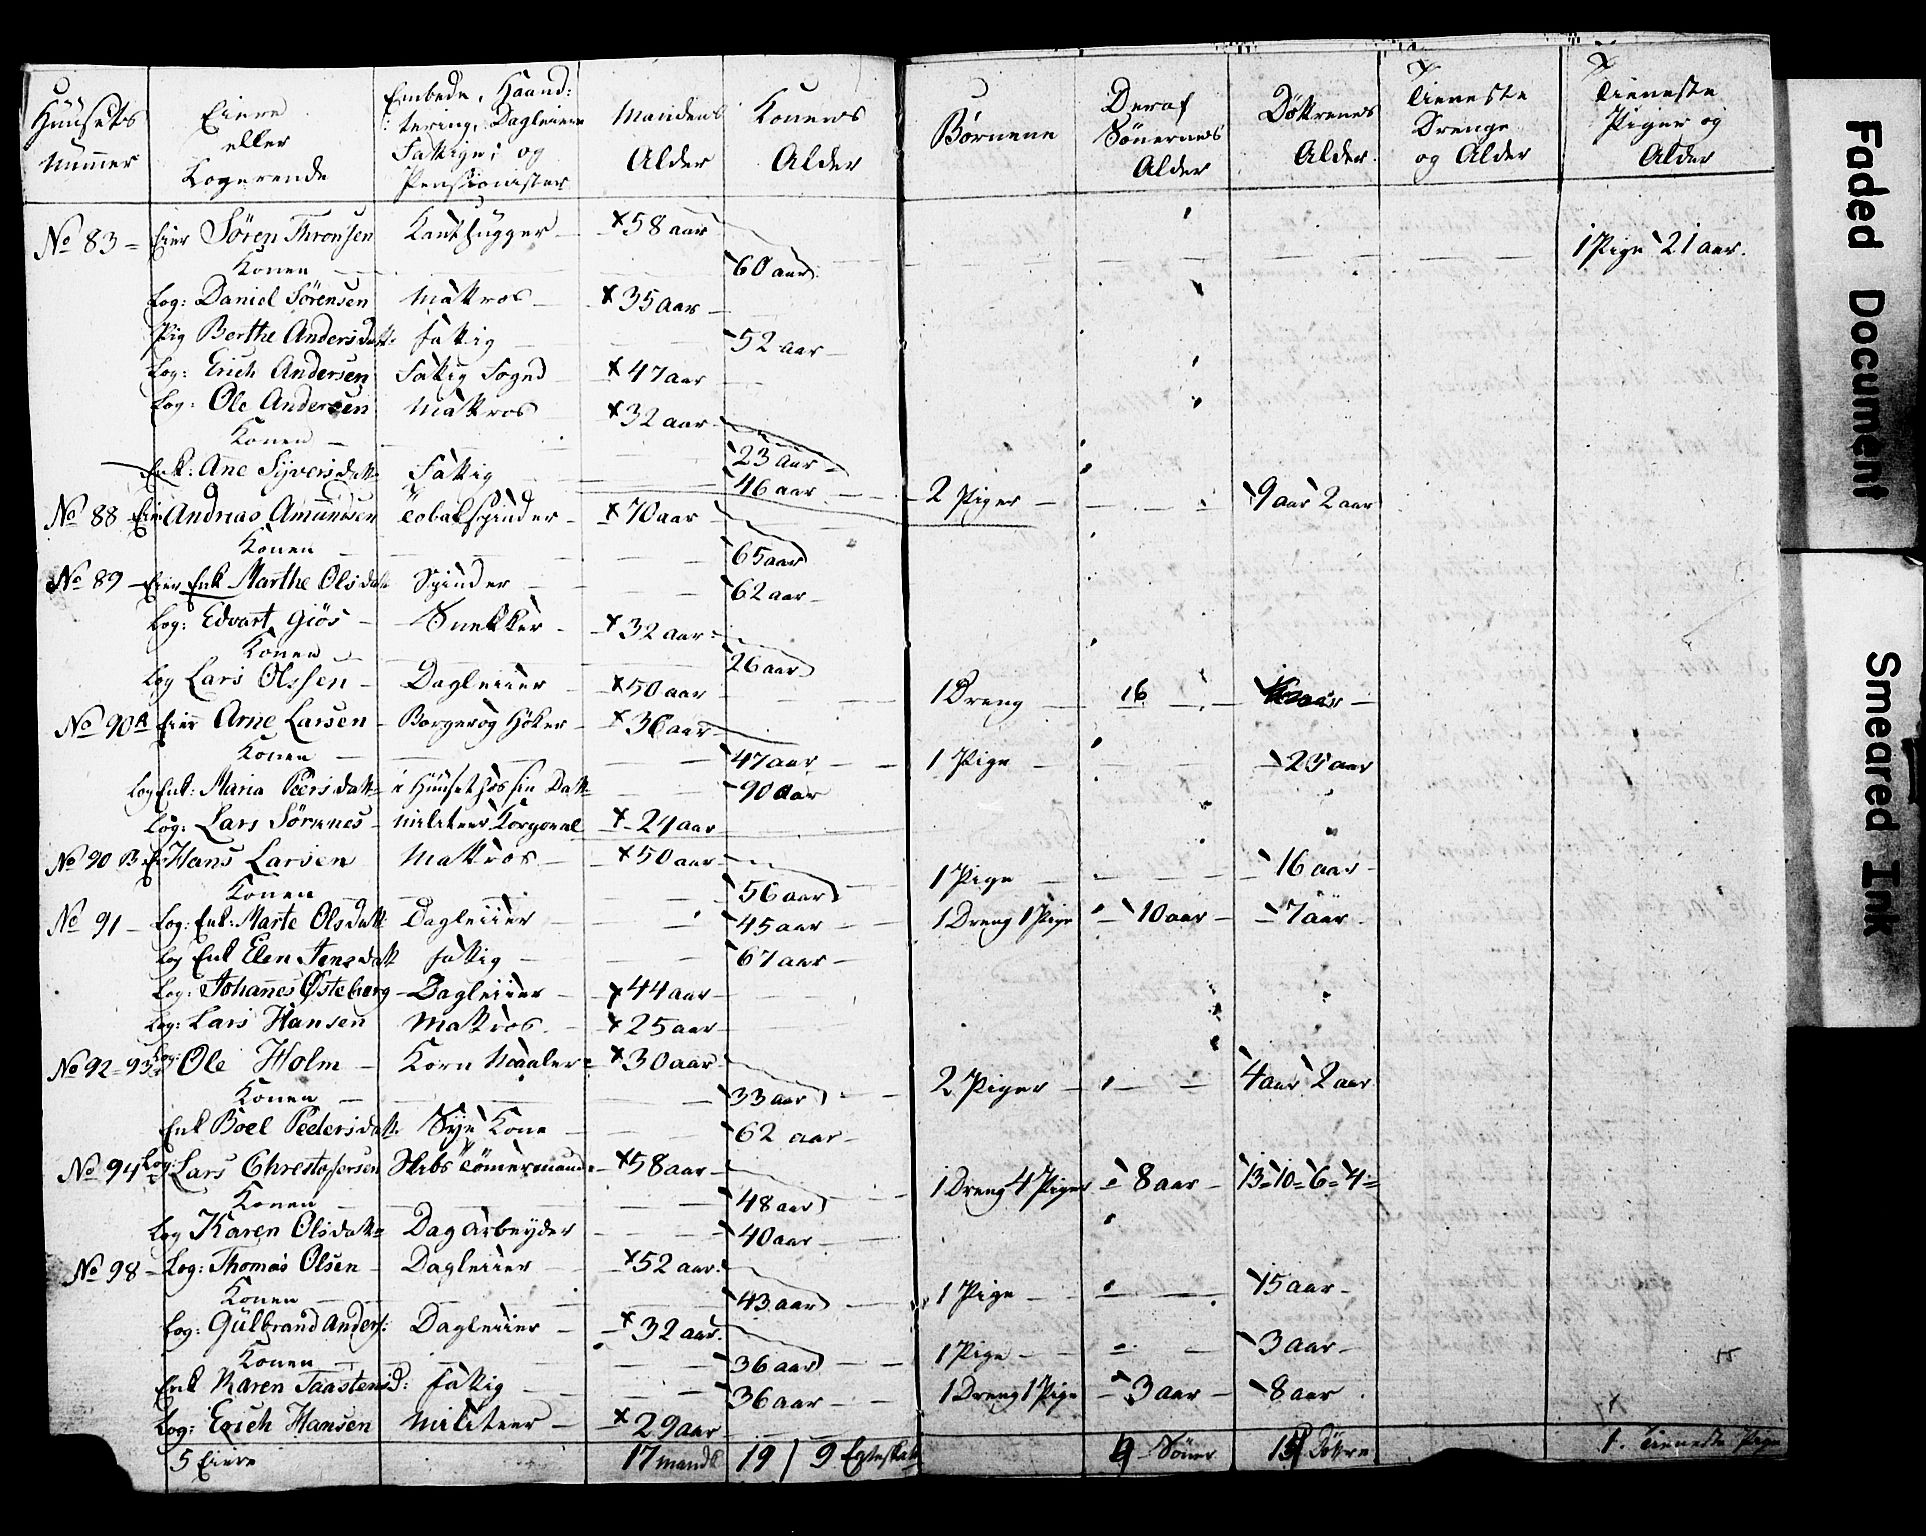 Huusets Nummer | Eiere eller Logerende | Embede, Haandtering, Dagleiere Fattige; og Pensionister | Mandens Alder | Konens Alder | Børnene | Deraf Sönernes Alder | Döttrenes Alder. | Tieneste Drenge og Alder | Tieneste Piger og Alder
No 83 = Eier Sören Thronsen | Kanthugger | x 58 aar | 1 Pige 21 aar.
Konen | 60 aar
Log: Daniel Sörensen | Matros | x 35 aar
Pig Berthe Andersdatt: | fattig | 52 aar
Log: Erich Andersen | Fattig Foged | x 47 aar
Log: Ole Andersen | Matros | x 32 aar
Konen | 23 aar
Enk: Ane Syversdatt | Fattig | 46 aar | 2 Piger | 9 aar 2 aar
No 88 Eier Andreas Amundsen | Tobakspinder | x 70 aar
Konen | 65 aar
No 89 Eier Enk Marthe Olsdatt | Spinder | 62 aar
Log: Edvart Giös | Snekker | x 32 aar
Konen | 26 aar
Log Lars Olssen | Dagleiier | x 50 aar | 1 Dreng | 16
No 90 A Eier Arne Larsen | Borger og Höker | x 36 aar
Konen | 47 aar | 1 Pige | 23 aar
Log Enk: Maria Peersdatt | i Huuset hos sin Datt | 90 aar
Log: Lars Sörenes | Militeer Korporal | x 24 aar
No 90 B Eier Hans Larsen | Matros | x 50 aar
Konen | 56 aar | 1 Pige | 16 aar
No 91 Log: Enk: Marte Olsdatt | Dagleiier | 45 aar | 1 Dreng 1 Pige | 10 aar | 7 aar
Log Enk Elen Jensdatt | fattig | 67 aar
Log: Johanes Østeberg | Dagleiier | x 44 aar
Log: Lars Hansen | Matros | x 25 aar
No 92 = 93 Log: Ole Holm | Korn Maaler | x 30 aar
Konen | 33 aar | 2 Piger | 4 aar 2 aar
Enk Boel Pedersdatt | Sye Kone | 62 aar
No 94 Log: Lars Chrestofersen | Skibs Tömermand | x 58 aar
Konen | 48 aar | 1 Dreng 4 Piger | 8 aar | 13 = 10 = 6 = 4 =
Log Karen Olsdatt | Dag arbeyder | 40 aar
No 98 Log: Thomas Olsen | Dagleiier | x 52 aar
Konen | 43 aar | 1 Pige | 15 aar
Log: Gulbrand Anders: | Dagleiier | x 32 aar
Konen | 36 aar | 1 Pige | 3 aar
Enk Karen Taastensd: | fattig | 36 aar | 1 Dreng 1 Pige | 3 aar | 8 aar
Log: Erich Hansen | Militeer | x 29 aar
5 Eiere | 17 mands | 19 / 9 Egteskab | Söner | Döttre | 1. Tieneste Pige
Faded Document
Smeared Ink